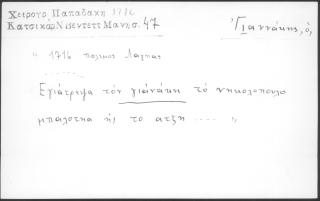 Χειρογρ. Παπαδάκη 1716
Κατσικάρ. Ν. Βεντεττ. Μάνης. 47
Γιαννάκης, ὁ,
" 1716 πόλεμος Λαγίας
Εγιάτρεψα τὸν γιἀνάκη τὸ νηκολόπουλο
μπαλοτηα ἠς το ατζη ..... "